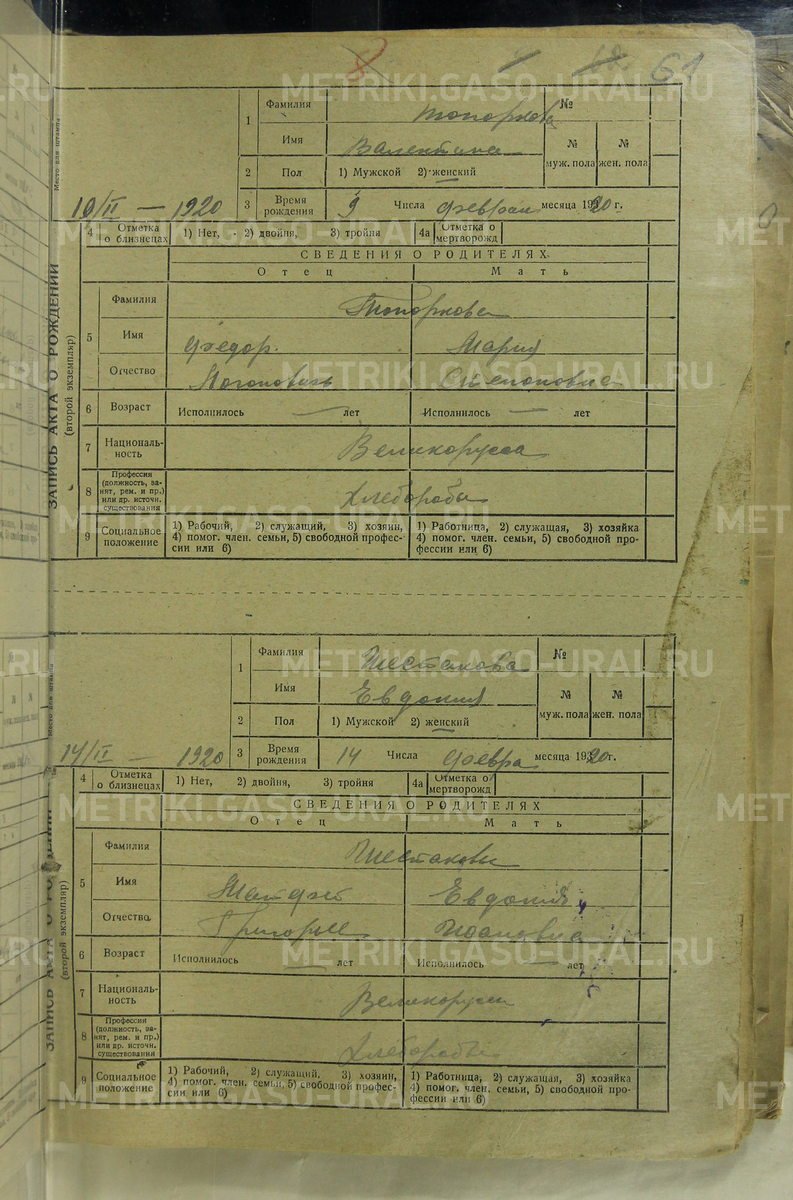 61
METRIKI.GASO-URAL.RU
Место для штампа
1 Фамилия Топоркова №
Имя Валентина № муж. пола № жен. пола
2 Пол 1) Мужской 2) женский
10/II — 1920
3 Время рождения 9 Числа феврал месяца 1920 г.
4 Отметка о близнецах 1) Нет, 2) двойня, 3) тройня 4а Отметка о мертворожд
ЗАПИСЬ АКТА О РОЖДЕНИИ
(второй экземпляр)
СВЕДЕНИЯ О РОДИТЕЛЯХ
Отец Мать
5 Фамилия Топорковы
Имя Федор Мария
Отчество Степановна
6 Возраст Исполнилось — лет Исполнилось — лет
7 Националь-
ность Великорусса
8 Профессия
(должность, за-
нят, рем. и пр.)
или др. источн.
существования Хлеборобы
9 Социальное положение 1) Рабочий, 2) служащий, 3) хозяин, 1) Работница, 2) служащая, 3) хозяйка
4) помог. член. семьи, 5) свободной профес- 4) помог. член. семьи, 5) свободной про-
сии или 6) фессии или 6)
Место для штампа
1 Фамилия Шестакова №
Имя Евдокия № муж. пола № жен. пола
2 Пол 1) Мужской 2) женский
14/II — 1920
3 Время рождения 14 Числа февра месяца 1920 г.
4 Отметка о близнецах 1) Нет, 2) двойня, 3) тройня 4а Отметка о мертворожд
ЗАПИСЬ АКТА О
(второй экземпляр)
СВЕДЕНИЯ О РОДИТЕЛЯХ
Отец Мать
5 Фамилия Шестаковы
Имя Матфей Евдокия
Отчество Григорьев Ивановна
6 Возраст Исполнилось — лет Исполнилось — лет
7 Националь-
ность Великоруссы
8 Профессия
(должность, за-
нят, рем. и пр.)
или др. источн.
существования Хлеборобы
9 Социальное положение 1) Рабочий, 2) служащий, 3) хозяин, 1) Работница, 2) служащая, 3) хозяйка
4) помог. член. семьи, 5) свободной профес- 4) помог. член. семьи, 5) свободной про-
сии или 6) фессии или 6)